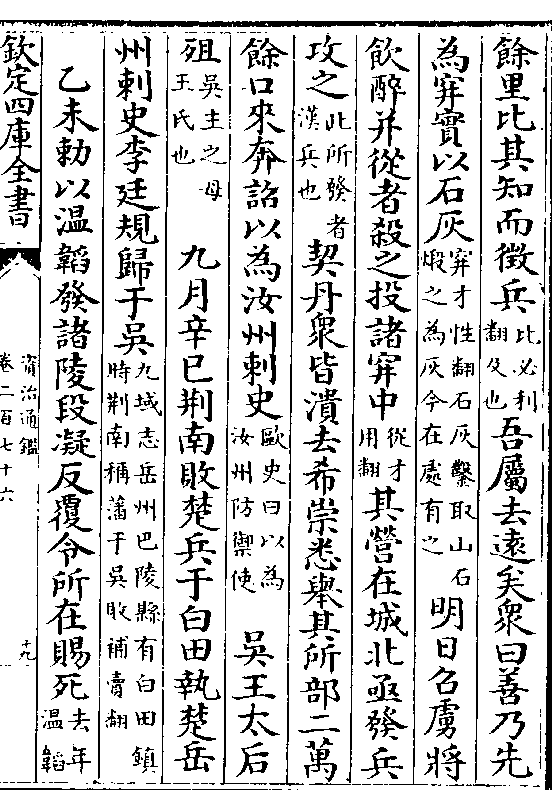 餘里比其知而徵兵比必利翻及也吾屬去遠矣衆曰善乃先
為穽實以石灰穽才性翻石灰鑿取山石煅之為灰今在處有之明日召虜將
飲醉并從者殺之投諸穽中從才用翻其營在城北亟發兵
攻之此所發者漢兵也契丹衆皆潰去希崇悉舉其所部二萬
餘口來奔詔以為汝州刺史歐史曰以為汝州防禦使吳王太后
殂吳主之母王氏也九月辛巳荆南敗楚兵于白田執楚岳
州刺史李廷規歸于吳九域志岳州巴陵縣有白田鎮時荆南稱藩于吳敗補賣翻
乙未勅以溫韜發諸陵段凝反覆令所在賜死去年溫韜
欽定四庫全書
資治通鑑
卷二百七十六
十九